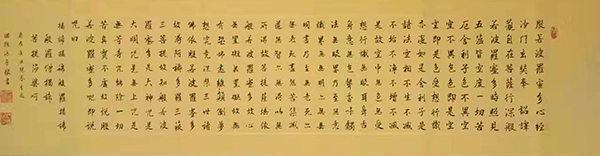 般若波羅蜜多心經
沙門玄奘奉 詔譯
觀自在菩薩行深般
若波羅蜜多時照見
五蘊皆空度一切苦
厄舍利子色不異空
空不異色色即是空
空即是色受想行識
亦復如是舍利子是
諸法空相不生不滅
不垢不淨不增不減
是故空中無色無受
想行識無眼耳鼻舌
身意無色聲香味觸
法無眼界乃至無意
識界無無明亦無無
明盡乃至無老死亦
無老死盡無苦集滅
道無智亦無得以無
所得故菩提薩埵依
般若波羅蜜多故心
無罣礙無罣礙故無
有恐怖遠離顛倒夢
想究竟涅槃三世諸
佛依般若波羅蜜多
故得阿耨多羅三藐
三菩提故知般若波
羅蜜多是大神咒是
大明咒是無上咒是
無等等咒能除一切
苦真實不虛故說般
若波羅蜜多咒即說
咒曰
揭諦揭諦般羅揭諦
般羅僧揭諦
菩提莎婆訶